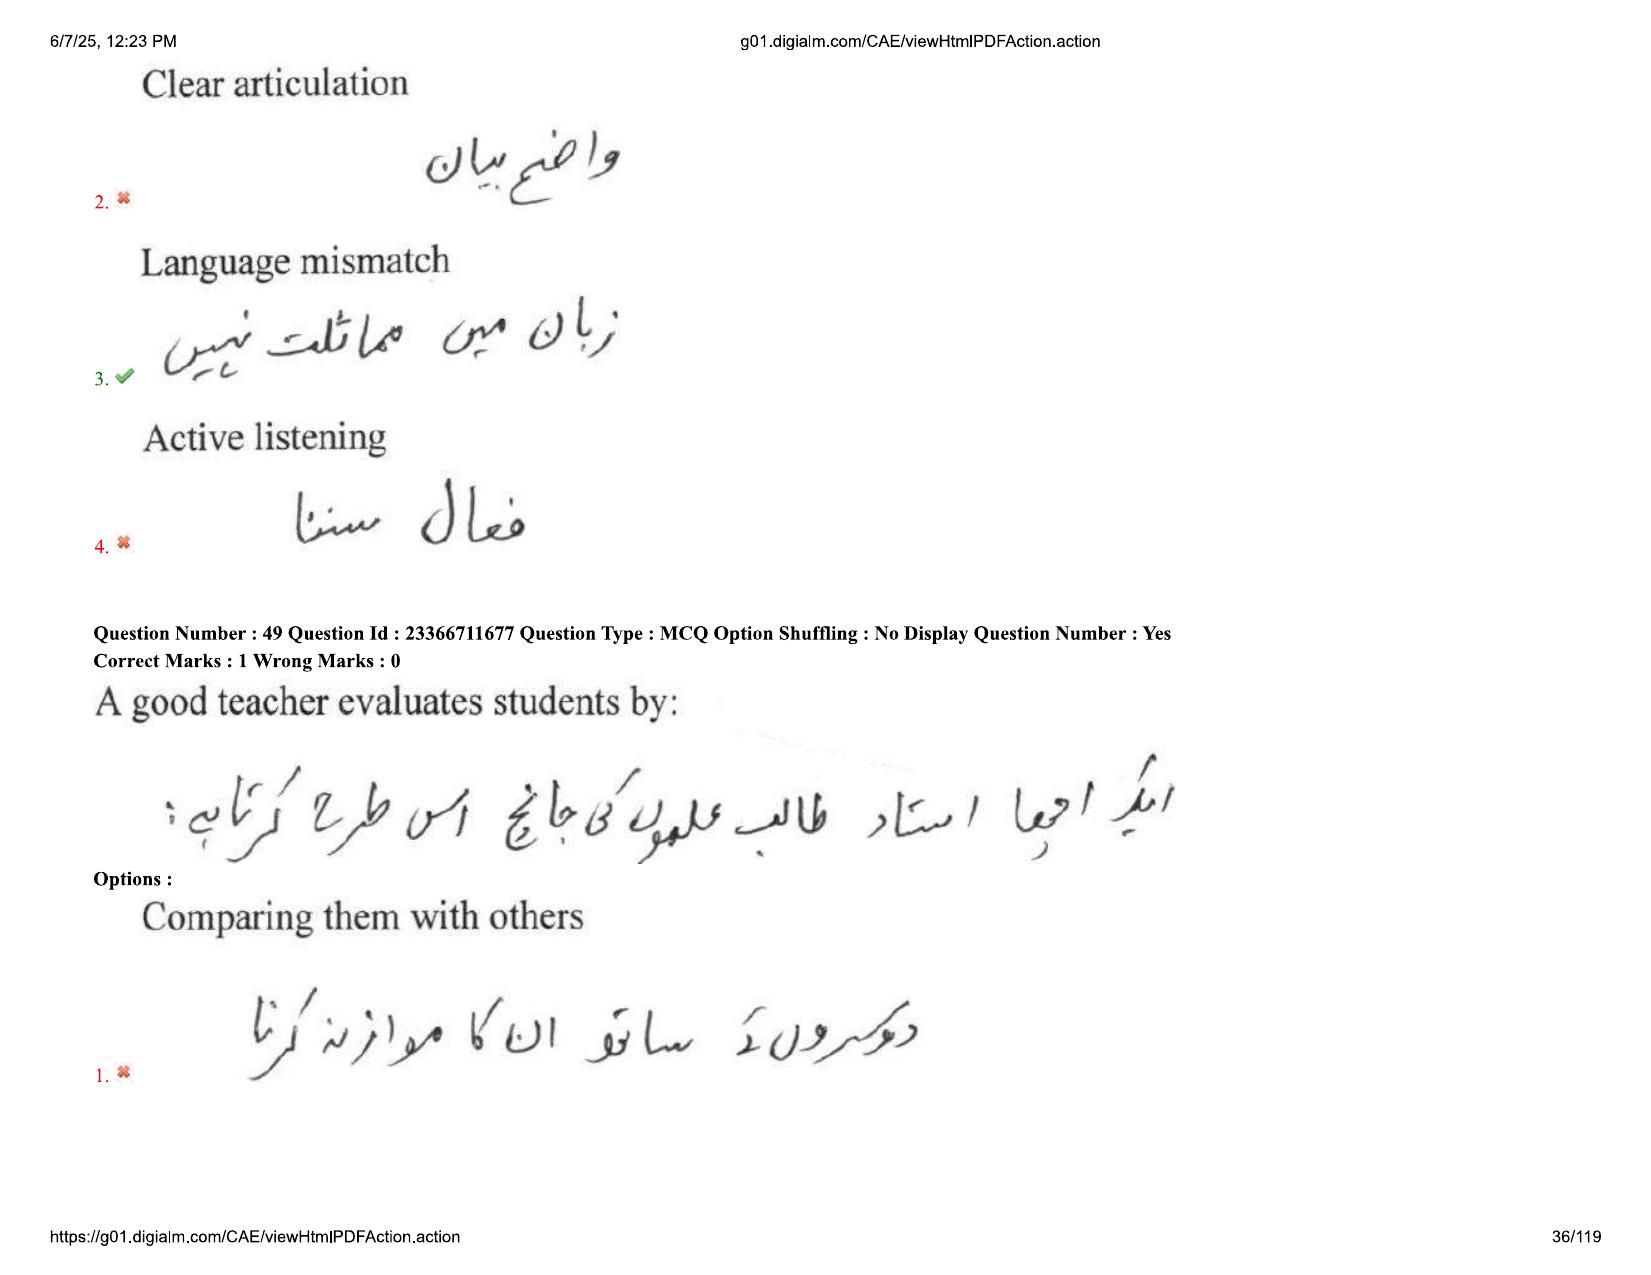 6/7/25, 12:23 PM
g01.digialm.com/CAE/viewHtmlPDFAction.action
Clear articulation
واضح بیان
2.
Language mismatch
زبان میں مماثلت نہیں
3.
Active listening
فعال سننا
4.
Question Number : 49 Question Id : 23366711677 Question Type : MCQ Option Shuffling : No Display Question Number : Yes
Correct Marks : 1 Wrong Marks : 0
A good teacher evaluates students by:
ایک اچھا استاد طالب علموں کی جانچ اس طرح کرتا ہے:
Options :
Comparing them with others
دوسروں کے ساتھ ان کا موازنہ کرنا
1.
https://g01.digialm.com/CAE/viewHtmlPDFAction.action
36/119